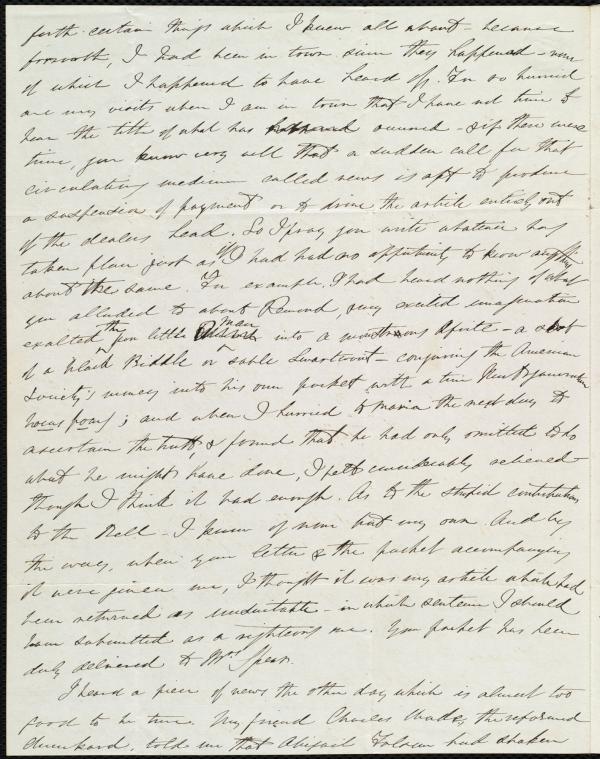 forth certain things which I knew all about - because
forsooth, I had been in town since they happened - none
of which I happened to have heard of. In so hurried
are my visits when I am in town that I have not time to
hear the tithe of what has happened occurred - & if there were
time, you know very well that a sudden call for that
circulating medium called news is apt to produce
a suspension of payment or to drive the article entirely out
of the dealers head. So I pray you write whatever has
taken place just as if I had had no opportunity to know anything
about the same. For example, I had heard nothing of what
you alluded to about Remond, my excited imagination
exalted the poor little man into a monstrous - a sort
of a black Biddle or sable Swartwout - conjuring the American
Society's money into his own pocket with a true
hocus pocus; and when I hurried to Maria the next day to
ascertain the truth, & found that he had only omitted to do
about he might have done, I felt considerably relieved
though I think it bad enough. As to the stupid contributions
to the Bell - I know of none but my own. And by
the way, when your letter & the packet accompanying
it were given me, I thought it was my article which had
been returned as unsuitable - in which sentence I should
have submitted as a righteous one. Your packet has been
duly delivered to Mr. Spear.
I heard a piece of news the other day which is almost too
good to be true. My friend Charles the reformed
drunkard, told me that Abigail Folsom had shaken